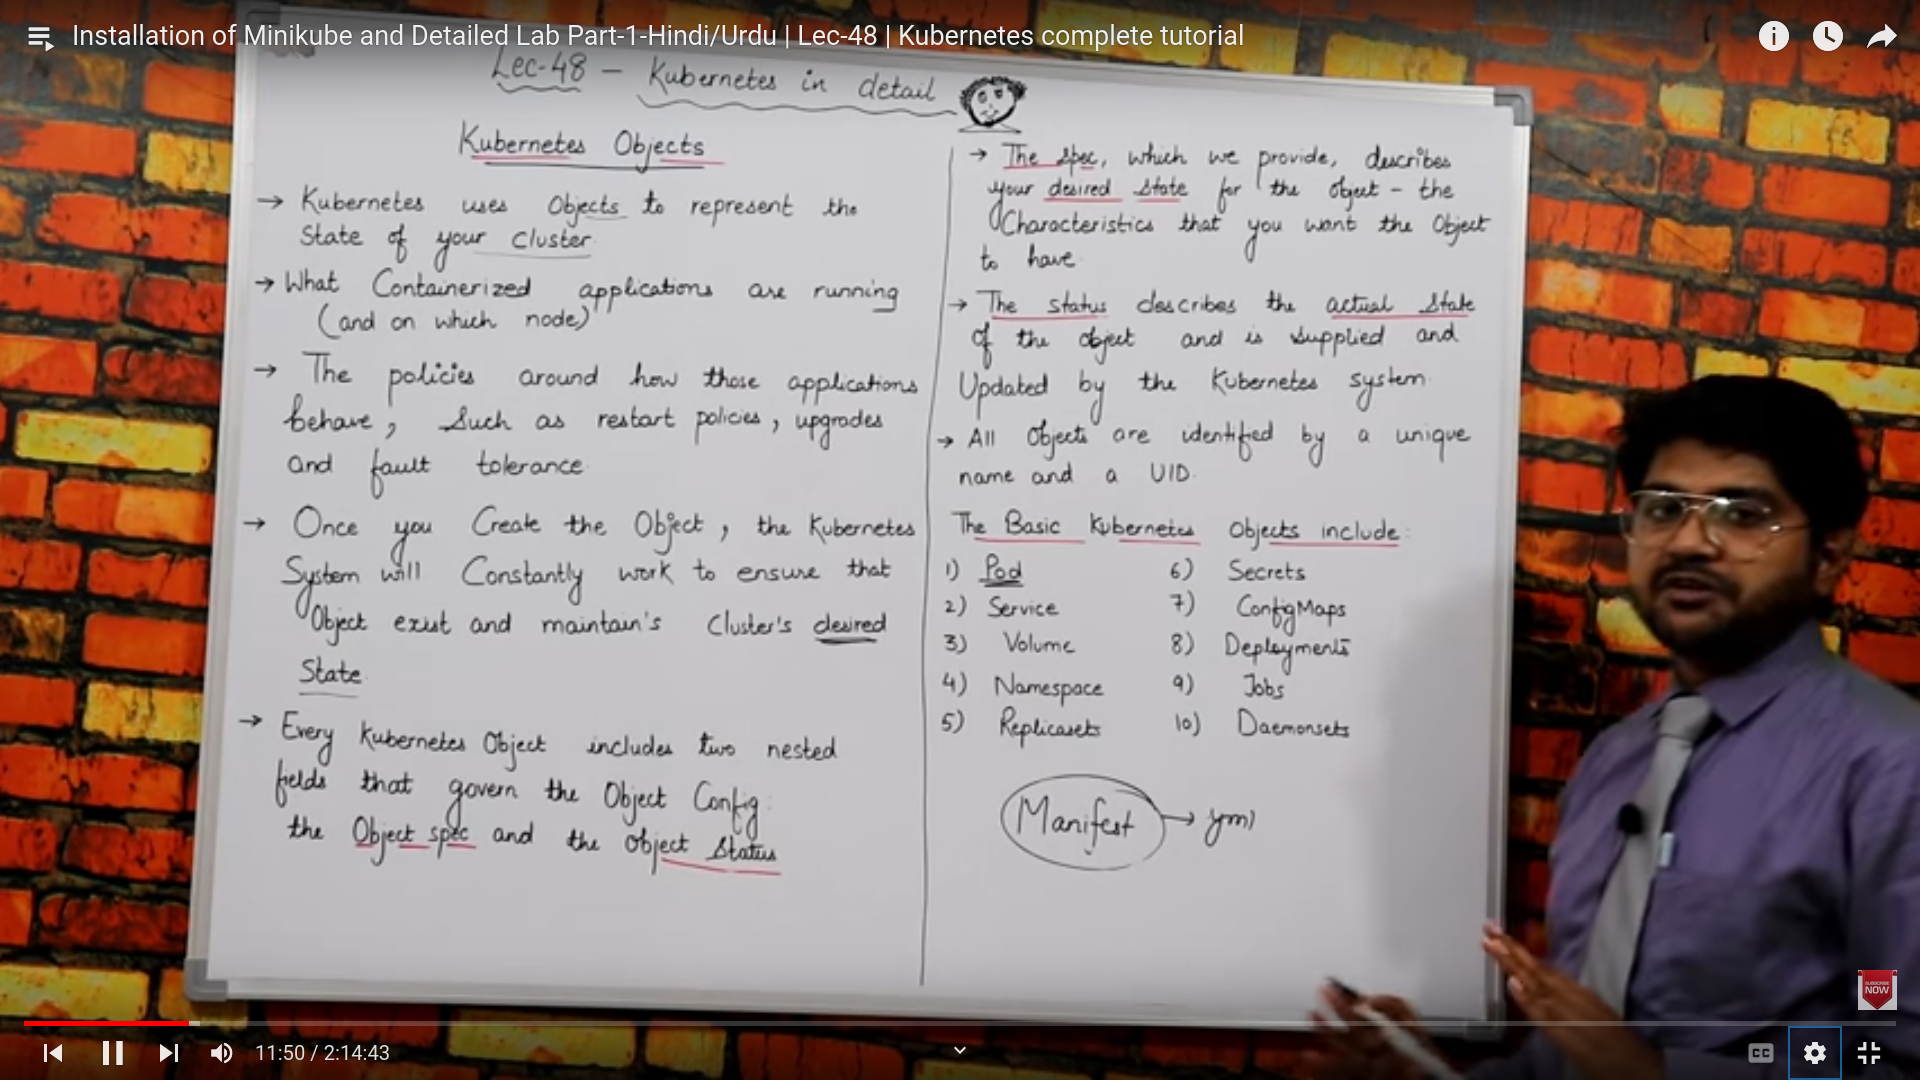 Installation of Minikube and Detailed Lab Part-1-Hindi/Urdu | Lec-48 | Kubernetes complete tutorial
Lec-48 – Kubernetes in detail
Kubernetes Objects
→ Kubernetes uses Objects to represent the
State of your Cluster.
→ What Containerized applications are running
(and on which node)
→ The policies around how those applications
behave, Such as restart policies, upgrades
and fault tolerance.
→ Once you Create the Object, the Kubernetes
System will Constantly work to ensure that
Object exist and maintain's Cluster's desired
State.
→ Every Kubernetes Object includes two nested
fields that govern the Object Config:
the Object spec and the Object Status
→ The Spec, which we provide, describes
your desired state for the object - the
Characteristics that you want the Object
to have.
→ The status describes the actual state
of the object and is supplied and
Updated by the Kubernetes system.
→ All Objects are identified by a unique
name and a UID.
The Basic Kubernetes Objects include:
1) Pod
2) Service
3) Volume
4) Namespace
5) Replicasets
6) Secrets
7) ConfigMaps
8) Deployments
9) Jobs
10) Daemonsets
Manifest → yml
SUBSCRIBE
NOW
11:50 / 2:14:43
CC